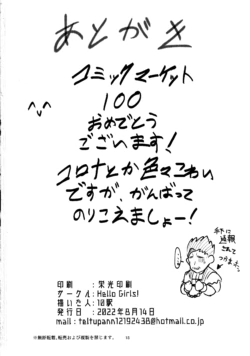 あとがき
コミックマーケット
100
おめでとう
ございます!
コロナとか色々こわい
ですが、がんばって
のりこえましょー!
印刷 : 栄光印刷
サークル : Hallo Girls!
描いた人 : 10駅
発行日 : 2022年8月14日
mail : taltupann12192438@hotmail.co.jp
※無断転載、転売および複製を禁じます。